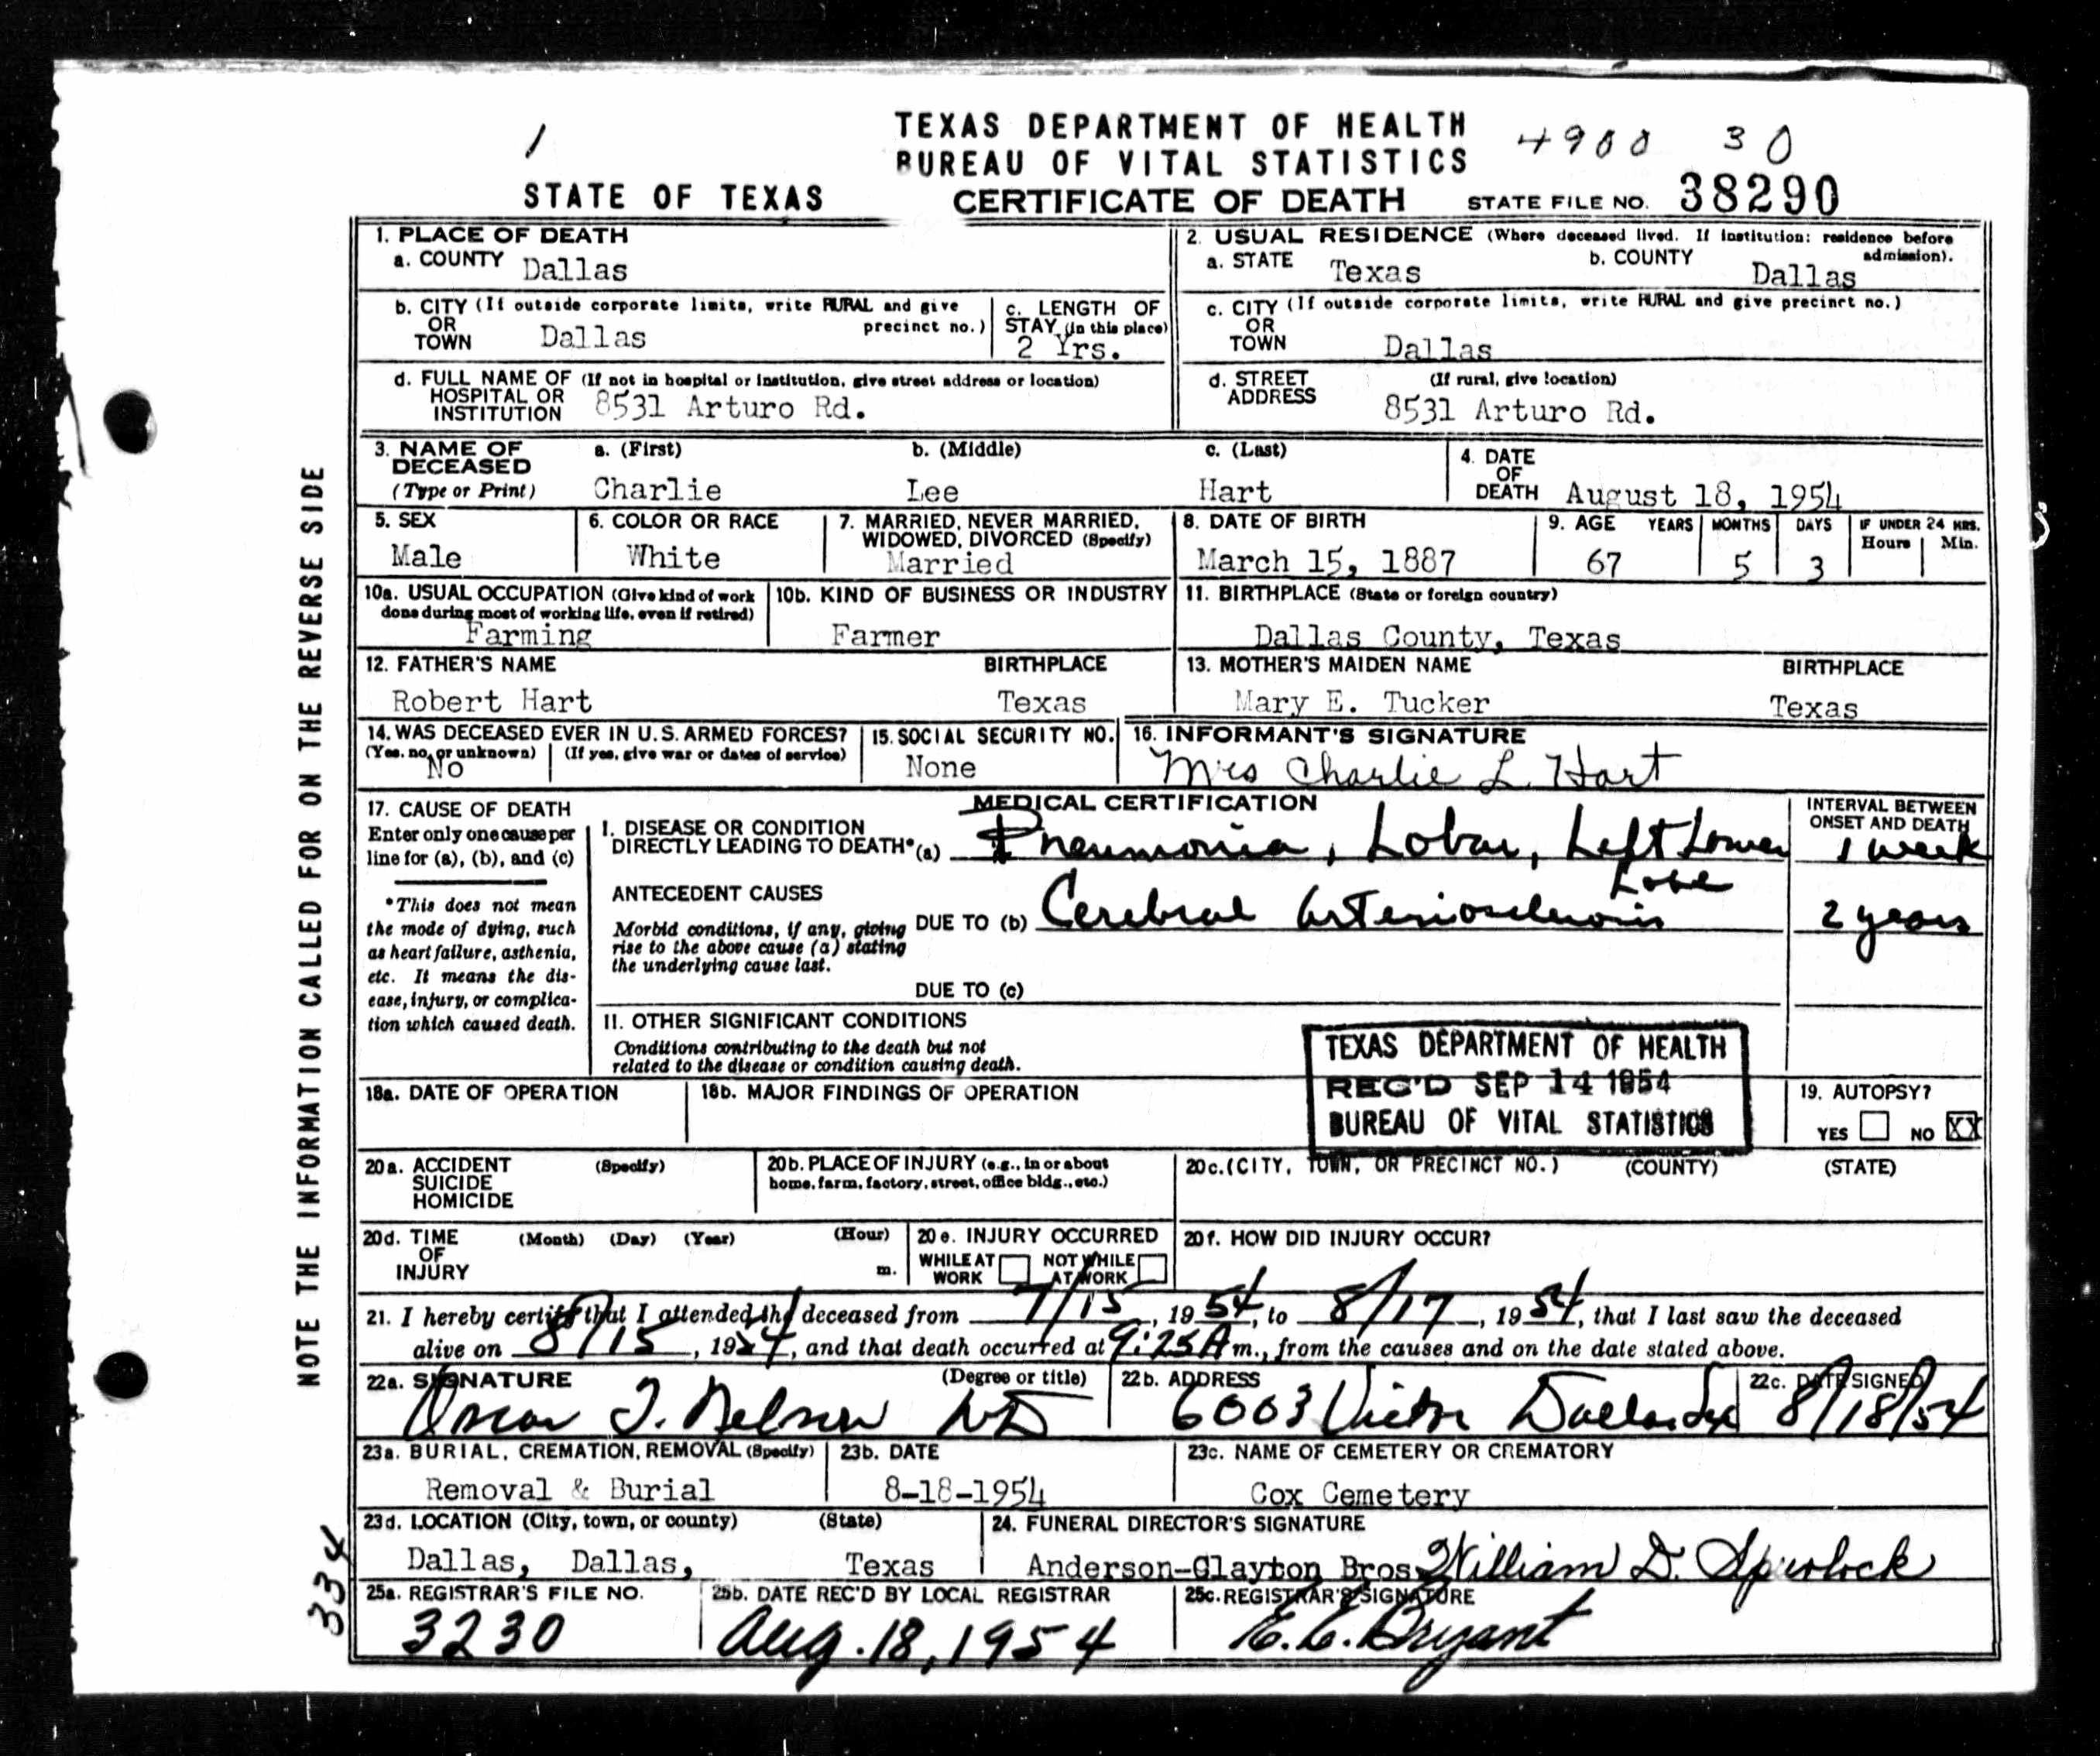 1
TEXAS DEPARTMENT OF HEALTH
BUREAU OF VITAL STATISTICS
4900 30
STATE OF TEXAS
CERTIFICATE OF DEATH
STATE FILE NO. 38290
1. PLACE OF DEATH
a. COUNTY Dallas
2. USUAL RESIDENCE (Where deceased lived. If institution: residence before admission).
a. STATE Texas b. COUNTY Dallas
b. CITY (If outside corporate limits, write RURAL and give precinct no.)
OR TOWN Dallas
c. LENGTH OF STAY (in this place)
2 Yrs.
c. CITY (If outside corporate limits, write RURAL and give precinct no.)
OR TOWN Dallas
d. FULL NAME OF HOSPITAL OR INSTITUTION (If not in hospital or institution, give street address or location)
8531 Arturo Rd.
d. STREET ADDRESS (If rural, give location)
8531 Arturo Rd.
3. NAME OF DECEASED (Type or Print)
a. (First) Charlie
b. (Middle) Lee
c. (Last) Hart
4. DATE OF DEATH August 18, 1954
5. SEX
Male
6. COLOR OR RACE
White
7. MARRIED, NEVER MARRIED, WIDOWED, DIVORCED (Specify)
Married
8. DATE OF BIRTH
March 15, 1887
9. AGE YEARS MONTHS DAYS IF UNDER 24 HRS. Hours Min.
67 5 3
10a. USUAL OCCUPATION (Give kind of work done during most of working life, even if retired)
Farming
10b. KIND OF BUSINESS OR INDUSTRY
Farmer
11. BIRTHPLACE (State or foreign country)
Dallas County, Texas
12. FATHER'S NAME BIRTHPLACE
Robert Hart Texas
13. MOTHER'S MAIDEN NAME BIRTHPLACE
Mary E. Tucker Texas
14. WAS DECEASED EVER IN U.S. ARMED FORCES?
(Yes. no, or unknown) (If yes, give war or dates of service)
No
15. SOCIAL SECURITY NO.
None
16. INFORMANT'S SIGNATURE
Mrs Charlie L. Hart
17. CAUSE OF DEATH
Enter only one cause per line for (a), (b), and (c)
*This does not mean the mode of dying, such as heart failure, asthenia, etc. It means the disease, injury, or complication which caused death.
MEDICAL CERTIFICATION
I. DISEASE OR CONDITION DIRECTLY LEADING TO DEATH* (a) Pneumonia, Lobar, Left Lower Lobe
INTERVAL BETWEEN ONSET AND DEATH
1 week
ANTECEDENT CAUSES
Morbid conditions, if any, giving rise to the above cause (a) stating the underlying cause last.
DUE TO (b) Cerebral Arteriosclerosis
2 years
DUE TO (c)
II. OTHER SIGNIFICANT CONDITIONS
Conditions contributing to the death but not related to the disease or condition causing death.
TEXAS DEPARTMENT OF HEALTH
REC'D SEP 14 1954
BUREAU OF VITAL STATISTICS
18a. DATE OF OPERATION
18b. MAJOR FINDINGS OF OPERATION
19. AUTOPSY?
YES NO XX
20a. ACCIDENT SUICIDE HOMICIDE (Specify)
20b. PLACE OF INJURY (e.g., in or about home, farm, factory, street, office bldg., etc.)
20c. (CITY, TOWN, OR PRECINCT NO.) (COUNTY) (STATE)
20d. TIME OF INJURY (Month) (Day) (Year) (Hour) m.
20e. INJURY OCCURRED
WHILE AT WORK NOT WHILE AT WORK
20f. HOW DID INJURY OCCUR?
21. I hereby certify that I attended the deceased from 7/15, 1954, to 8/17, 1954, that I last saw the deceased
alive on 8/15, 1954, and that death occurred at 9:25 A m., from the causes and on the date stated above.
22a. SIGNATURE (Degree or title)
Oscar T. Nelson MD
22b. ADDRESS
6003 Victor Dallas Tex
22c. DATE SIGNED
8/18/54
23a. BURIAL, CREMATION, REMOVAL (Specify)
Removal & Burial
23b. DATE
8-18-1954
23c. NAME OF CEMETERY OR CREMATORY
Cox Cemetery
23d. LOCATION (City, town, or county) (State)
Dallas, Dallas, Texas
24. FUNERAL DIRECTOR'S SIGNATURE
Anderson-Clayton Bros William D. Spurlock
25a. REGISTRAR'S FILE NO.
3230
25b. DATE REC'D BY LOCAL REGISTRAR
Aug. 18, 1954
25c. REGISTRAR'S SIGNATURE
E. E. Bryant
NOTE THE INFORMATION CALLED FOR ON THE REVERSE SIDE
334